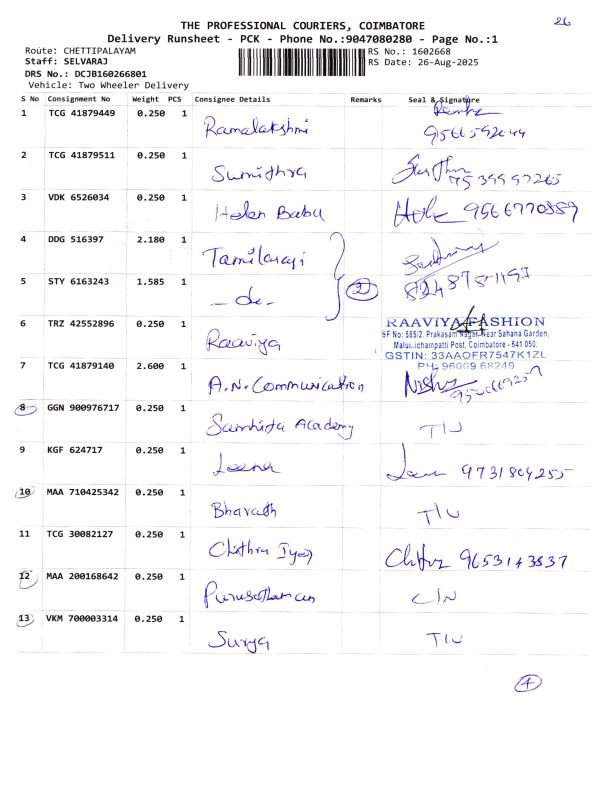 26
THE PROFESSIONAL COURIERS, COIMBATORE
Delivery Runsheet - PCK - Phone No.:9047080280 - Page No.:1
Route: CHETTIPALAYAM RS No.: 1602668
Staff: SELVARAJ RS Date: 26-Aug-2025
DRS No.: DCJB160266801
Vehicle: Two Wheeler Delivery
S No Consignment No Weight PCS Consignee Details Remarks Seal & Signature
1 TCG 41879449 0.250 1 Ramalakshmi
2 TCG 41879511 0.250 1 Sumithra
3 VDK 6526034 0.250 1 Helen Babu 9566770889
4 DDG 516397 2.180 1 Tamilarasi
5 STY 6163243 1.585 1 -do- 2
6 TRZ 42552896 0.250 1 Raaviya
RAAVIYA FASHION
SF No: 585/2, Prakasam Nagar, Near Sahana Garden,
Malumichampatti Post, Coimbatore - 641 050.
GSTIN: 33AAOFR7547K1ZL
PH: 96009 68249
7 TCG 41879140 2.600 1 A.N. Communication
8 GGN 900976717 0.250 1 Samhita Academy TIU
9 KGF 624717 0.250 1 Leena 9731804255
10 MAA 710425342 0.250 1 Bharath TIU
11 TCG 30082127 0.250 1 Chithra Iyer 9653143837
12 MAA 200168642 0.250 1 Purusothaman CIN
13 VKM 700003314 0.250 1 Surya TIU
4